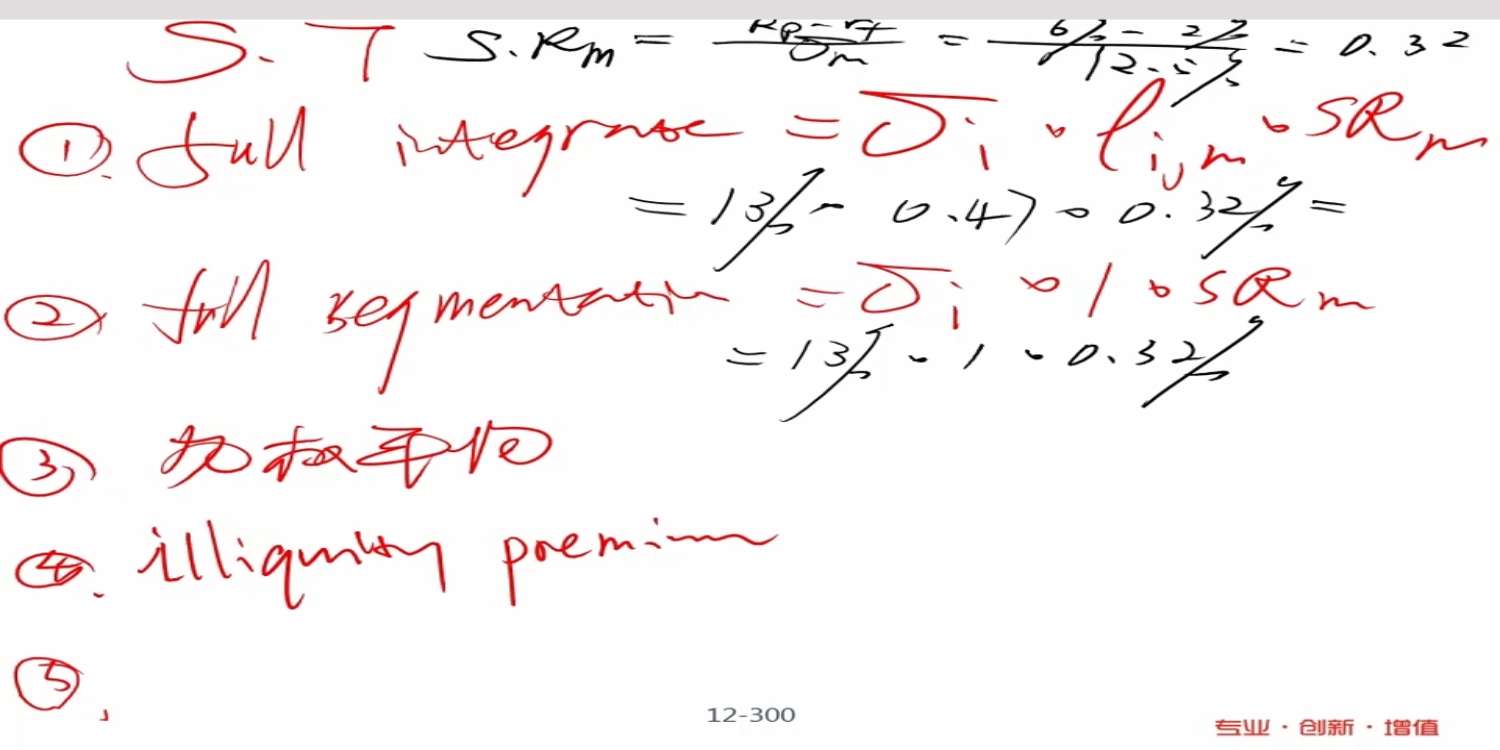 S.T S.Rm = Rp-rf / σm = 6% - 2% / 12.5% = 0.32
①. full integrate = σi · ρi,m · SRm
= 13% · 0.47 · 0.32% =
②. full segmentation = σi · 1 · SRm
= 13% · 1 · 0.32%
③ 加权平均
④. illiquidity premium
⑤.
12-300
专业·创新·增值